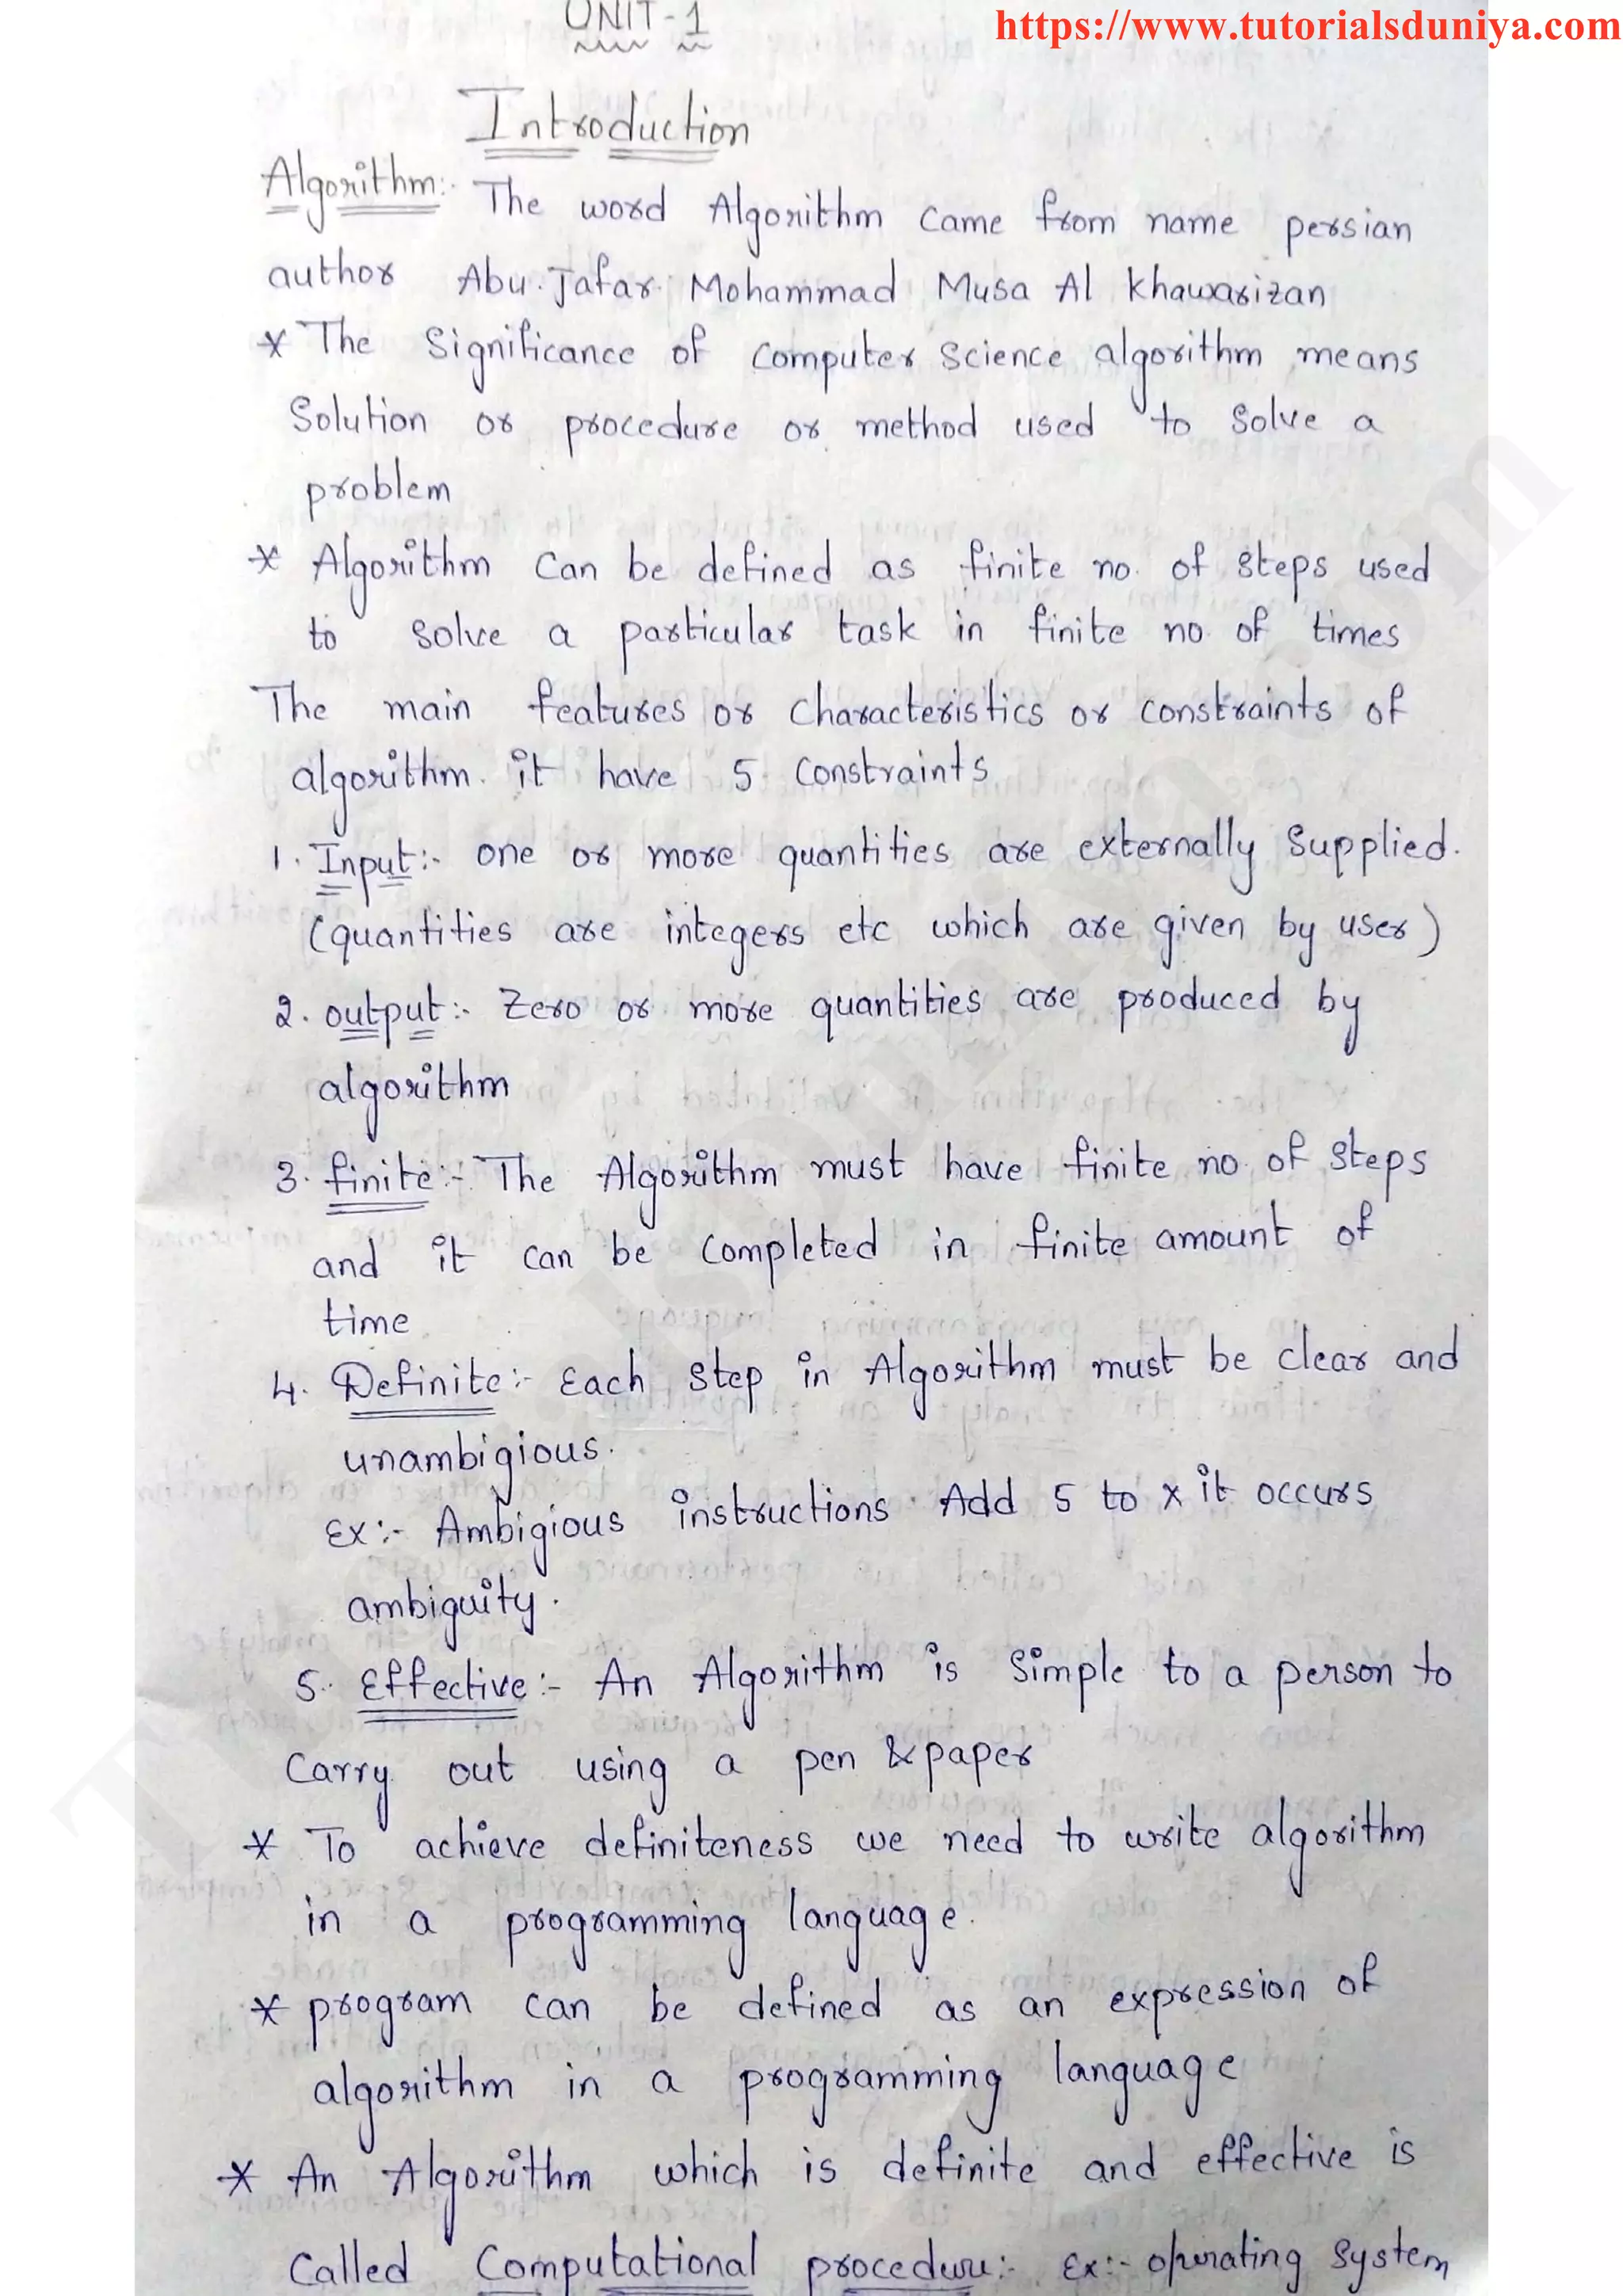 https://www.tutorialsduniya.com
UNIT-1
Introduction
Algorithm:- The word Algorithm came from name persian
author Abu. Jafar Mohammad Musa Al khawarizan
* The Significance of computer science algorithm means
Solution or procedure or method used to solve a
problem
* Algorithm can be defined as finite no. of steps used
to solve a particular task in finite no. of times
The main features or characteristics or constraints of
algorithm. it have 5 constraints
1. Input:- one or more quantities are externally supplied.
(quantities are integers etc which are given by user)
2. output:- zero or more quantities are produced by
algorithm
3. finite:- The Algorithm must have finite no. of steps
and it can be completed in finite amount of
time
4. Definite:- Each step in Algorithm must be clear and
unambigious.
Ex:- Ambigious instructions Add 5 to x it occurs
ambiguity.
5. Effective:- An Algorithm is simple to a person to
carry out using a pen & paper
* To achieve definiteness we need to write algorithm
in a programming language.
* program can be defined as an expression of
algorithm in a programming language
* An Algorithm which is definite and effective is
called Computational procedure:- Ex:- operating system